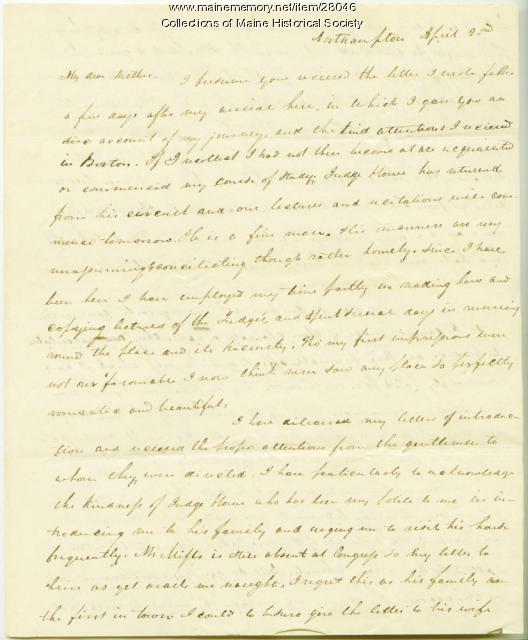 www.mainememory.net/item/28046
Collections of Maine Historical Society
Northampton April 2nd
My dear Mother. I presume you received the letter I wrote father
a few days after my arrival here, in which I gave you an
account of my journey, and the kind attentions I received
in Boston. If I recollect I had not then become at all acquainted
or commenced my course of study. Judge Howe has returned
from his circuit and our lectures and recitations will com
mence tomorrow. He is a fine man. His manners are very
unassuming & conciliating though rather homely. Since I have
been here I have employed my time partly in reading law and
copying lectures of the Judge's, and spent several days in running
round the place and its vicinity. Tho my first impressions were
not over favorable I now think never saw any place so perfectly
romantic and beautiful.
I have delivered my letters of introduc-
tion and received the proper attentions from the gentlemen to
whom they were directed. I have particularly to acknowledge
the kindness of Judge Howe who has been very polite to me in in-
troducing me to his family and urging me to visit his house
frequently. Mr Mills is still absent at Congress so my letter to
him as yet avails me naught. I regret this as his family are
the first in town. I could to be sure give the letter to his wife